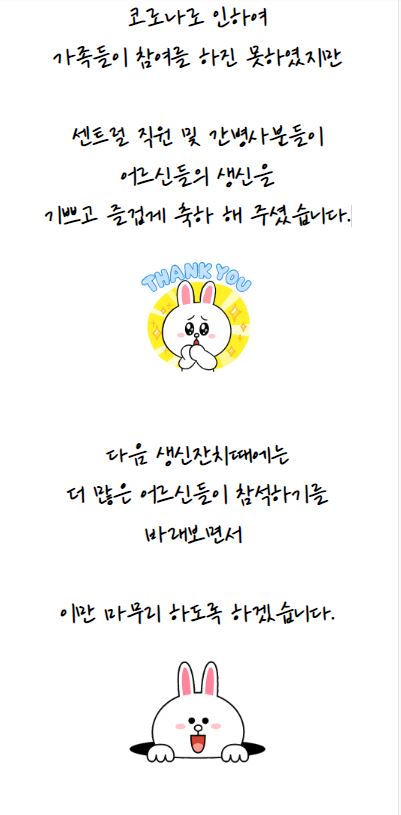 코로나로 인하여
가족들이 참여를 하진 못하였지만
센트럴 직원 및 간병사분들이
어르신들의 생신을
기쁘고 즐겁게 축하 해 주셨습니다.
THANK YOU
다음 생신잔치때에는
더 많은 어르신들이 참석하기를
바래보면서
이만 마무리 하도록 하겠습니다.